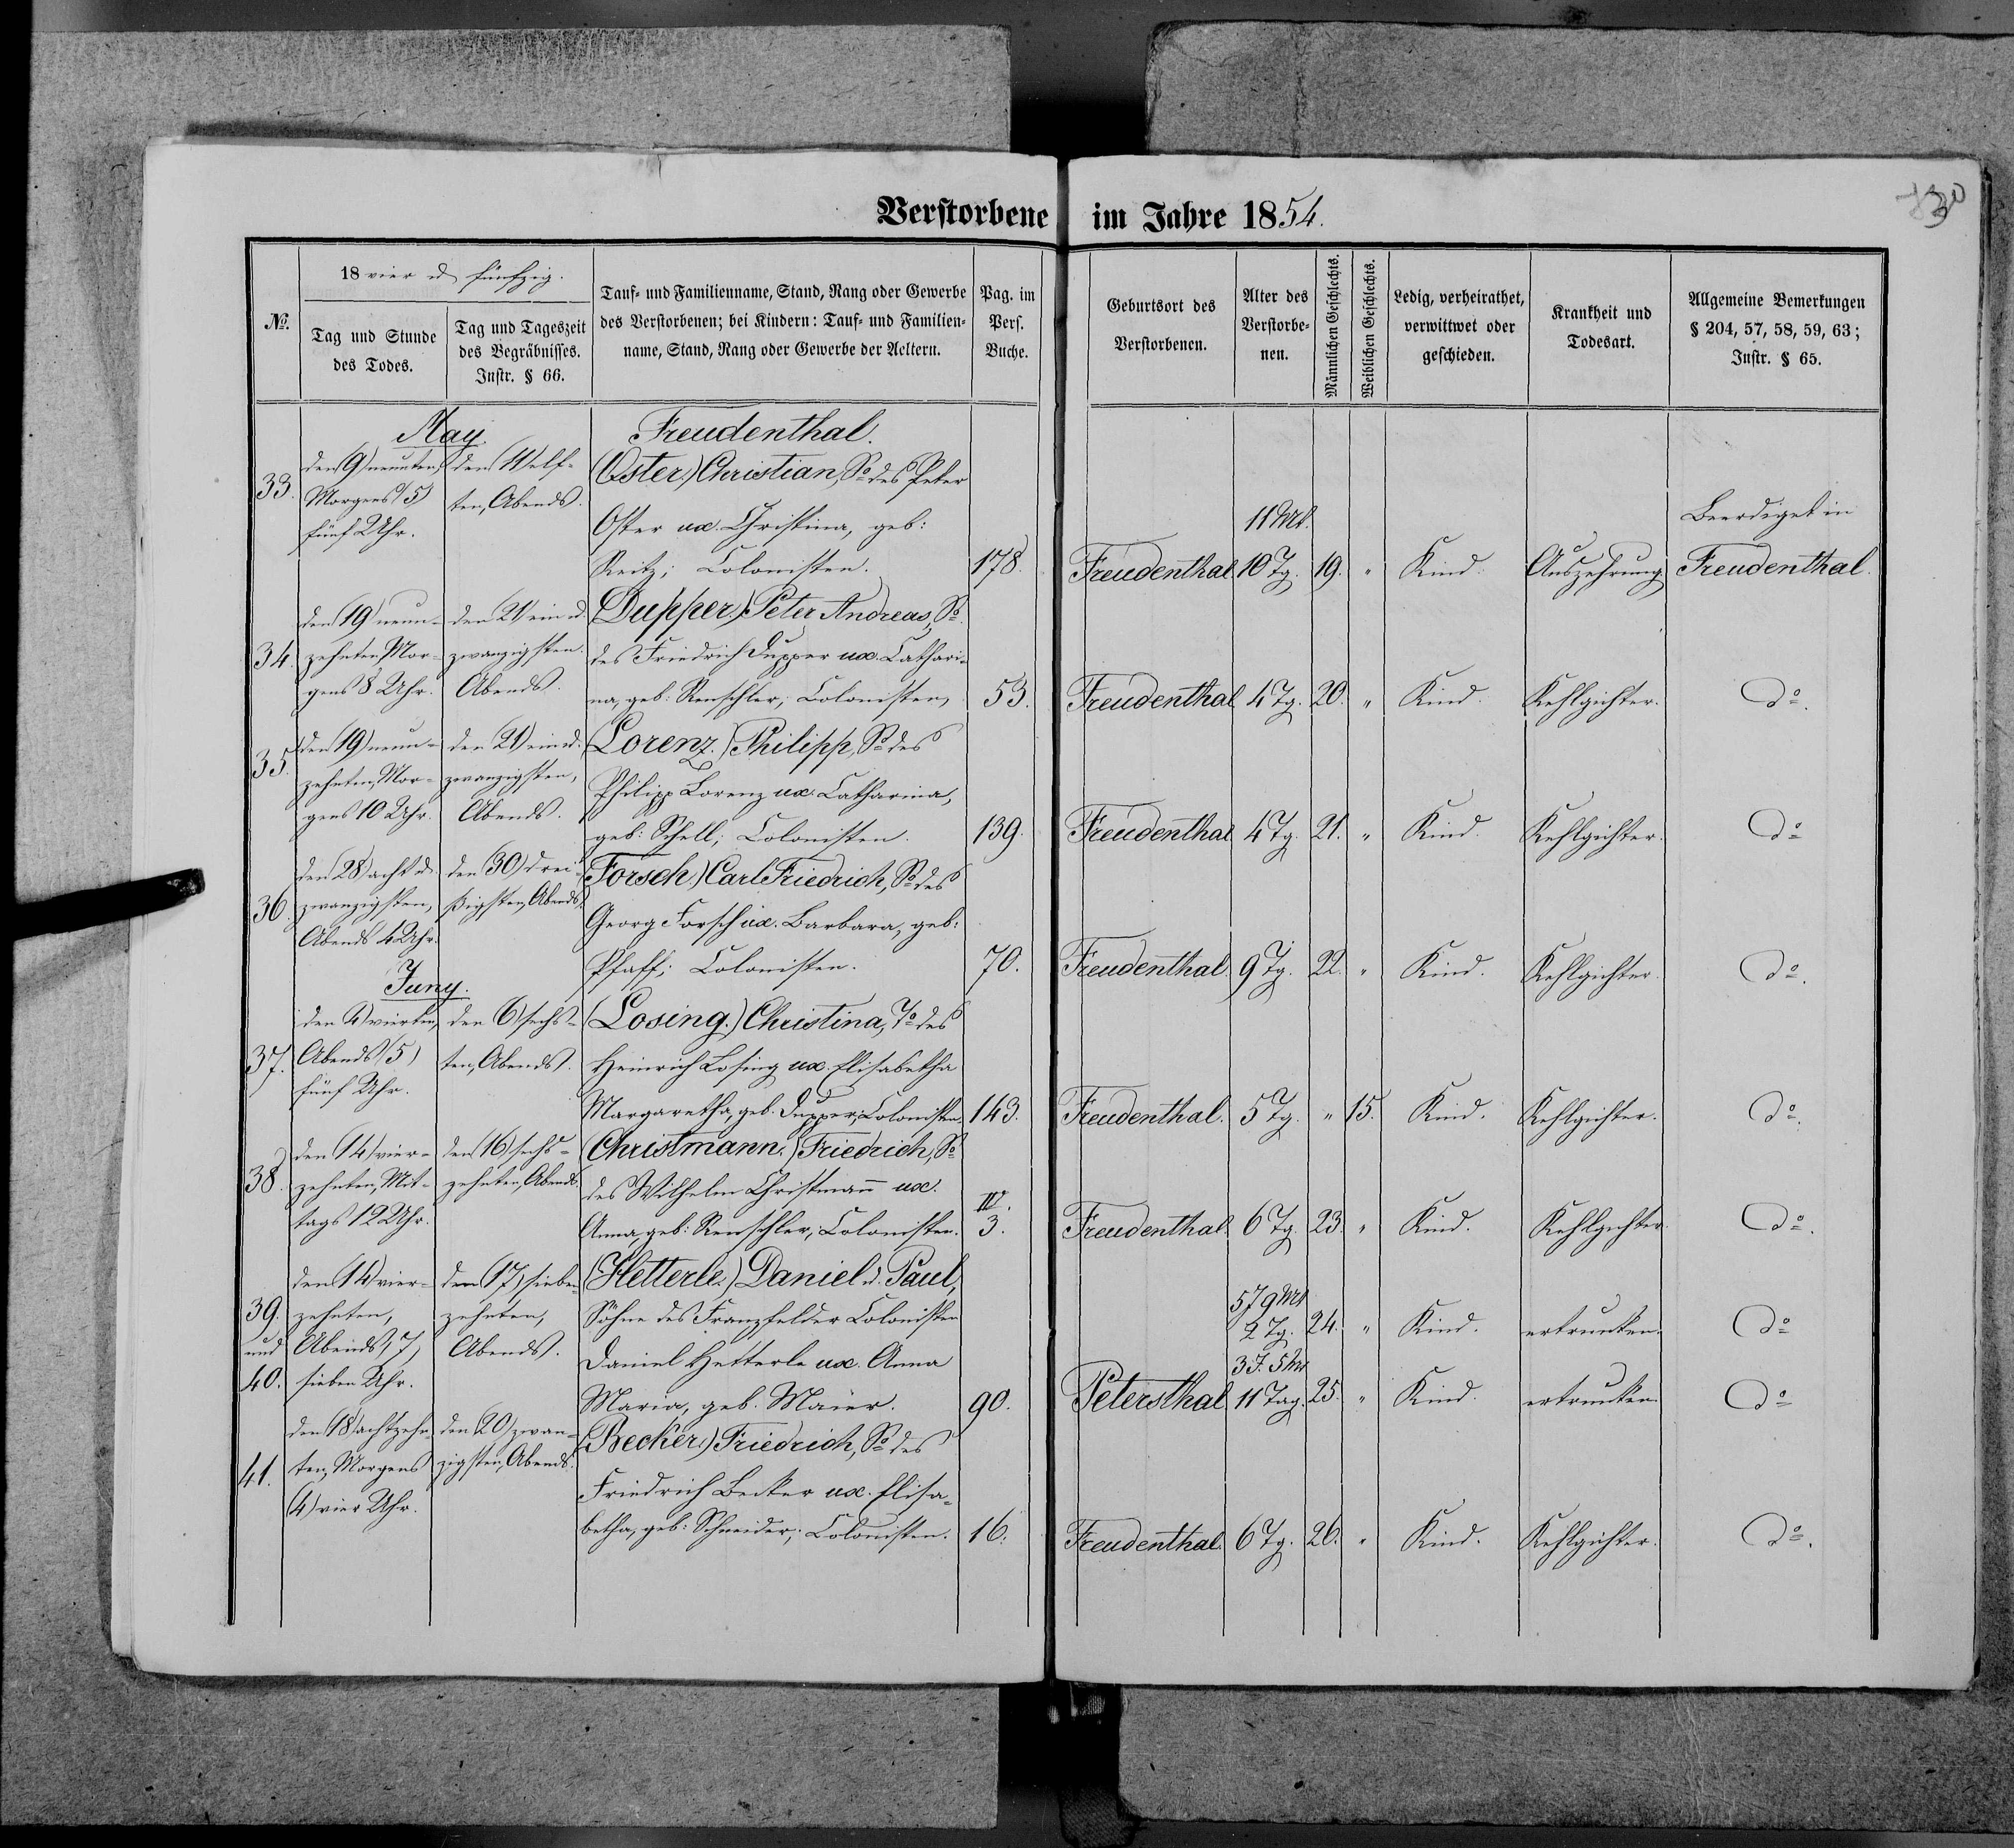 Verstorbene im Jahre 1854.
130
№.
18 vier u. fünfzig.
Tag und Stunde
des Todes.
Tag und Tageszeit
des Begräbnisses.
Instr. § 66.
Tauf- und Familienname, Stand, Rang oder Gewerbe
des Verstorbenen; bei Kindern: Tauf- und Familien-
name, Stand, Rang oder Gewerbe der Aeltern.
Pag. im
Pers.
Buche.
Geburtsort des
Verstorbenen.
Alter des
Verstorbe-
nen.
Männlichen Geschlechts.
Weiblichen Geschlechts.
Ledig, verheirathet,
verwittwet oder
geschieden.
Krankheit und
Todesart.
Allgemeine Bemerkungen
§ 204, 57, 58, 59, 63;
Instr. § 65.
May.
Freudenthal.
33.
den 9) neunten,
Morgens (5)
fünf Uhr.
den 11) elf-
ten, Abends.
(Oster.) Christian, So. des Peter
Oster ux. Christina, geb:
Reitz; Colonisten.
178.
Freudenthal.
11 Mt.
10 Tg.
19.
"
Kind.
Auszehrung
Beerdiget in
Freudenthal.
34.
den 19) neun-
zehnten, Mor-
gens 8 Uhr.
den 21) ein u.
zwanzigsten.
Abends.
(Dupper.) Peter Andreas, So.
des Friedrich Dupper ux. Cathari-
na, geb: Renschler; Colonisten,
53.
Freudenthal
4 Tg.
20.
"
Kind.
Kehlgichter.
do.
35.
den 19) neun-
zehnten, Mor-
gens 10 Uhr.
den 21) ein u.
zwanzigsten,
Abends.
(Lorenz.) Philipp, So. des
Philipp Lorenz ux. Catharina,
geb: Schell; Colonisten.
139.
Freudenthal
4 Tg.
21.
"
Kind.
Kehlgichter.
do
36.
den 28) acht u.
zwanzigsten,
Abends 4 Uhr.
den (30) drei-
ßigsten, Abends.
(Forsch.) Carl Friedrich, So. des
Georg Forsch ux. Barbara, geb:
Pfaff; Colonisten.
70.
Freudenthal.
9 Tg.
22.
"
Kind.
Kehlgichter.
do.
Juny.
37.
den 4) vierten,
Abends (5)
fünf Uhr.
den 6) sechs-
ten, Abends.
(Losing.) Christina, To. des
Heinrich Losing ux. Elisabetha
Margaretha, geb. Dupper; Colonisten.
143.
Freudenthal.
5 Tg.
"
15.
Kind.
Kehlgichter.
do.
38.
den 14) vier-
zehnten, Mit-
tags 12 Uhr.
den 16) sechs-
zehnten, Abends.
(Christmann.) Friedrich, So.
des Wilhelm Christmann ux.
Anna, geb: Renschler; Colonisten.
IV.
3.
Freudenthal.
6 Tg.
23.
"
Kind.
Kehlgichter.
do.
39.
und
40.
den 14) vier-
zehnten,
Abends, 7)
sieben Uhr.
den 17) sieben-
zehnten,
Abends.
(Hetterle.) Daniel u. Paul,
Söhne des Franzfelder Colonisten
Daniel Hetterle ux. Anna
Maria, geb. Maier.
90.
Petersthal
5 J 9 Mt
2 Tg.
24.
"
Kind.
ertrunken.
do
3 J. 5 Mt
11 Tag.
25.
"
Kind.
ertrunken.
do
41.
den 18) achtzehn-
ten, Morgens
(4) vier Uhr.
den 20) zwan-
zigsten, Abends.
(Becker.) Friedrich, So. des
Friedrich Becker ux. Elisa-
betha, geb: Schneider; Colonisten.
16.
Freudenthal.
6 Tg.
26.
"
Kind.
Kehlgichter.
do.